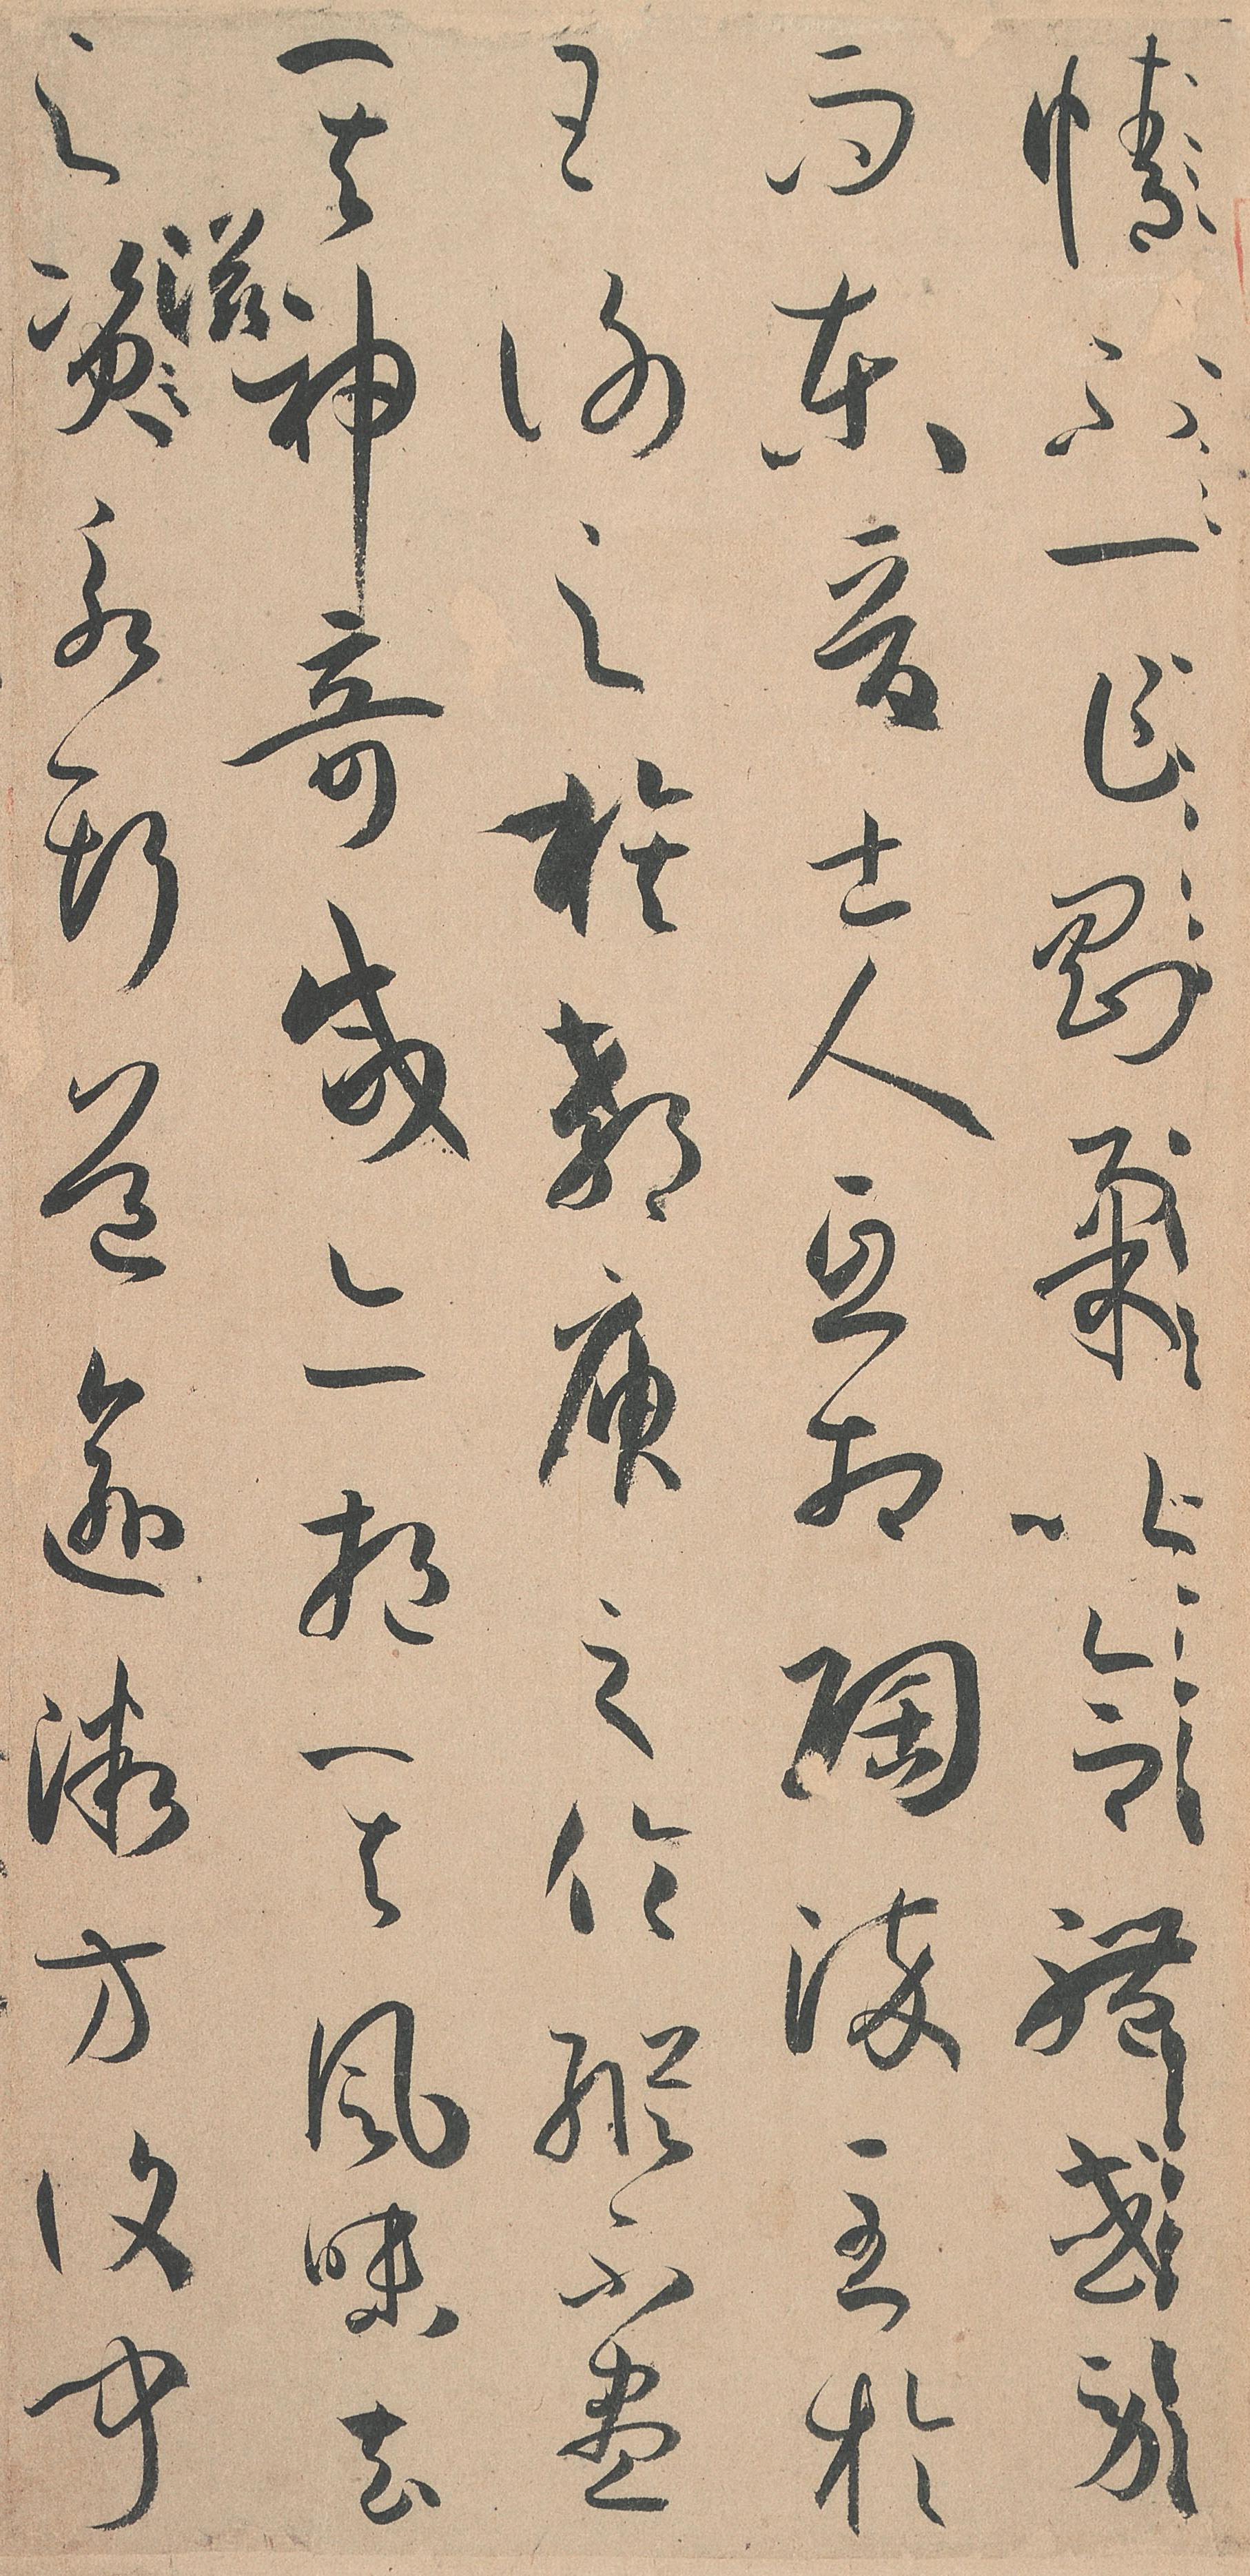 情不一乍剛柔以合體
而東晉士人互相陶淬至於
王謝之族郗庾之倫縱不盡
其神奇咸亦挹其風味去
之滋永斯道逾微方復聞